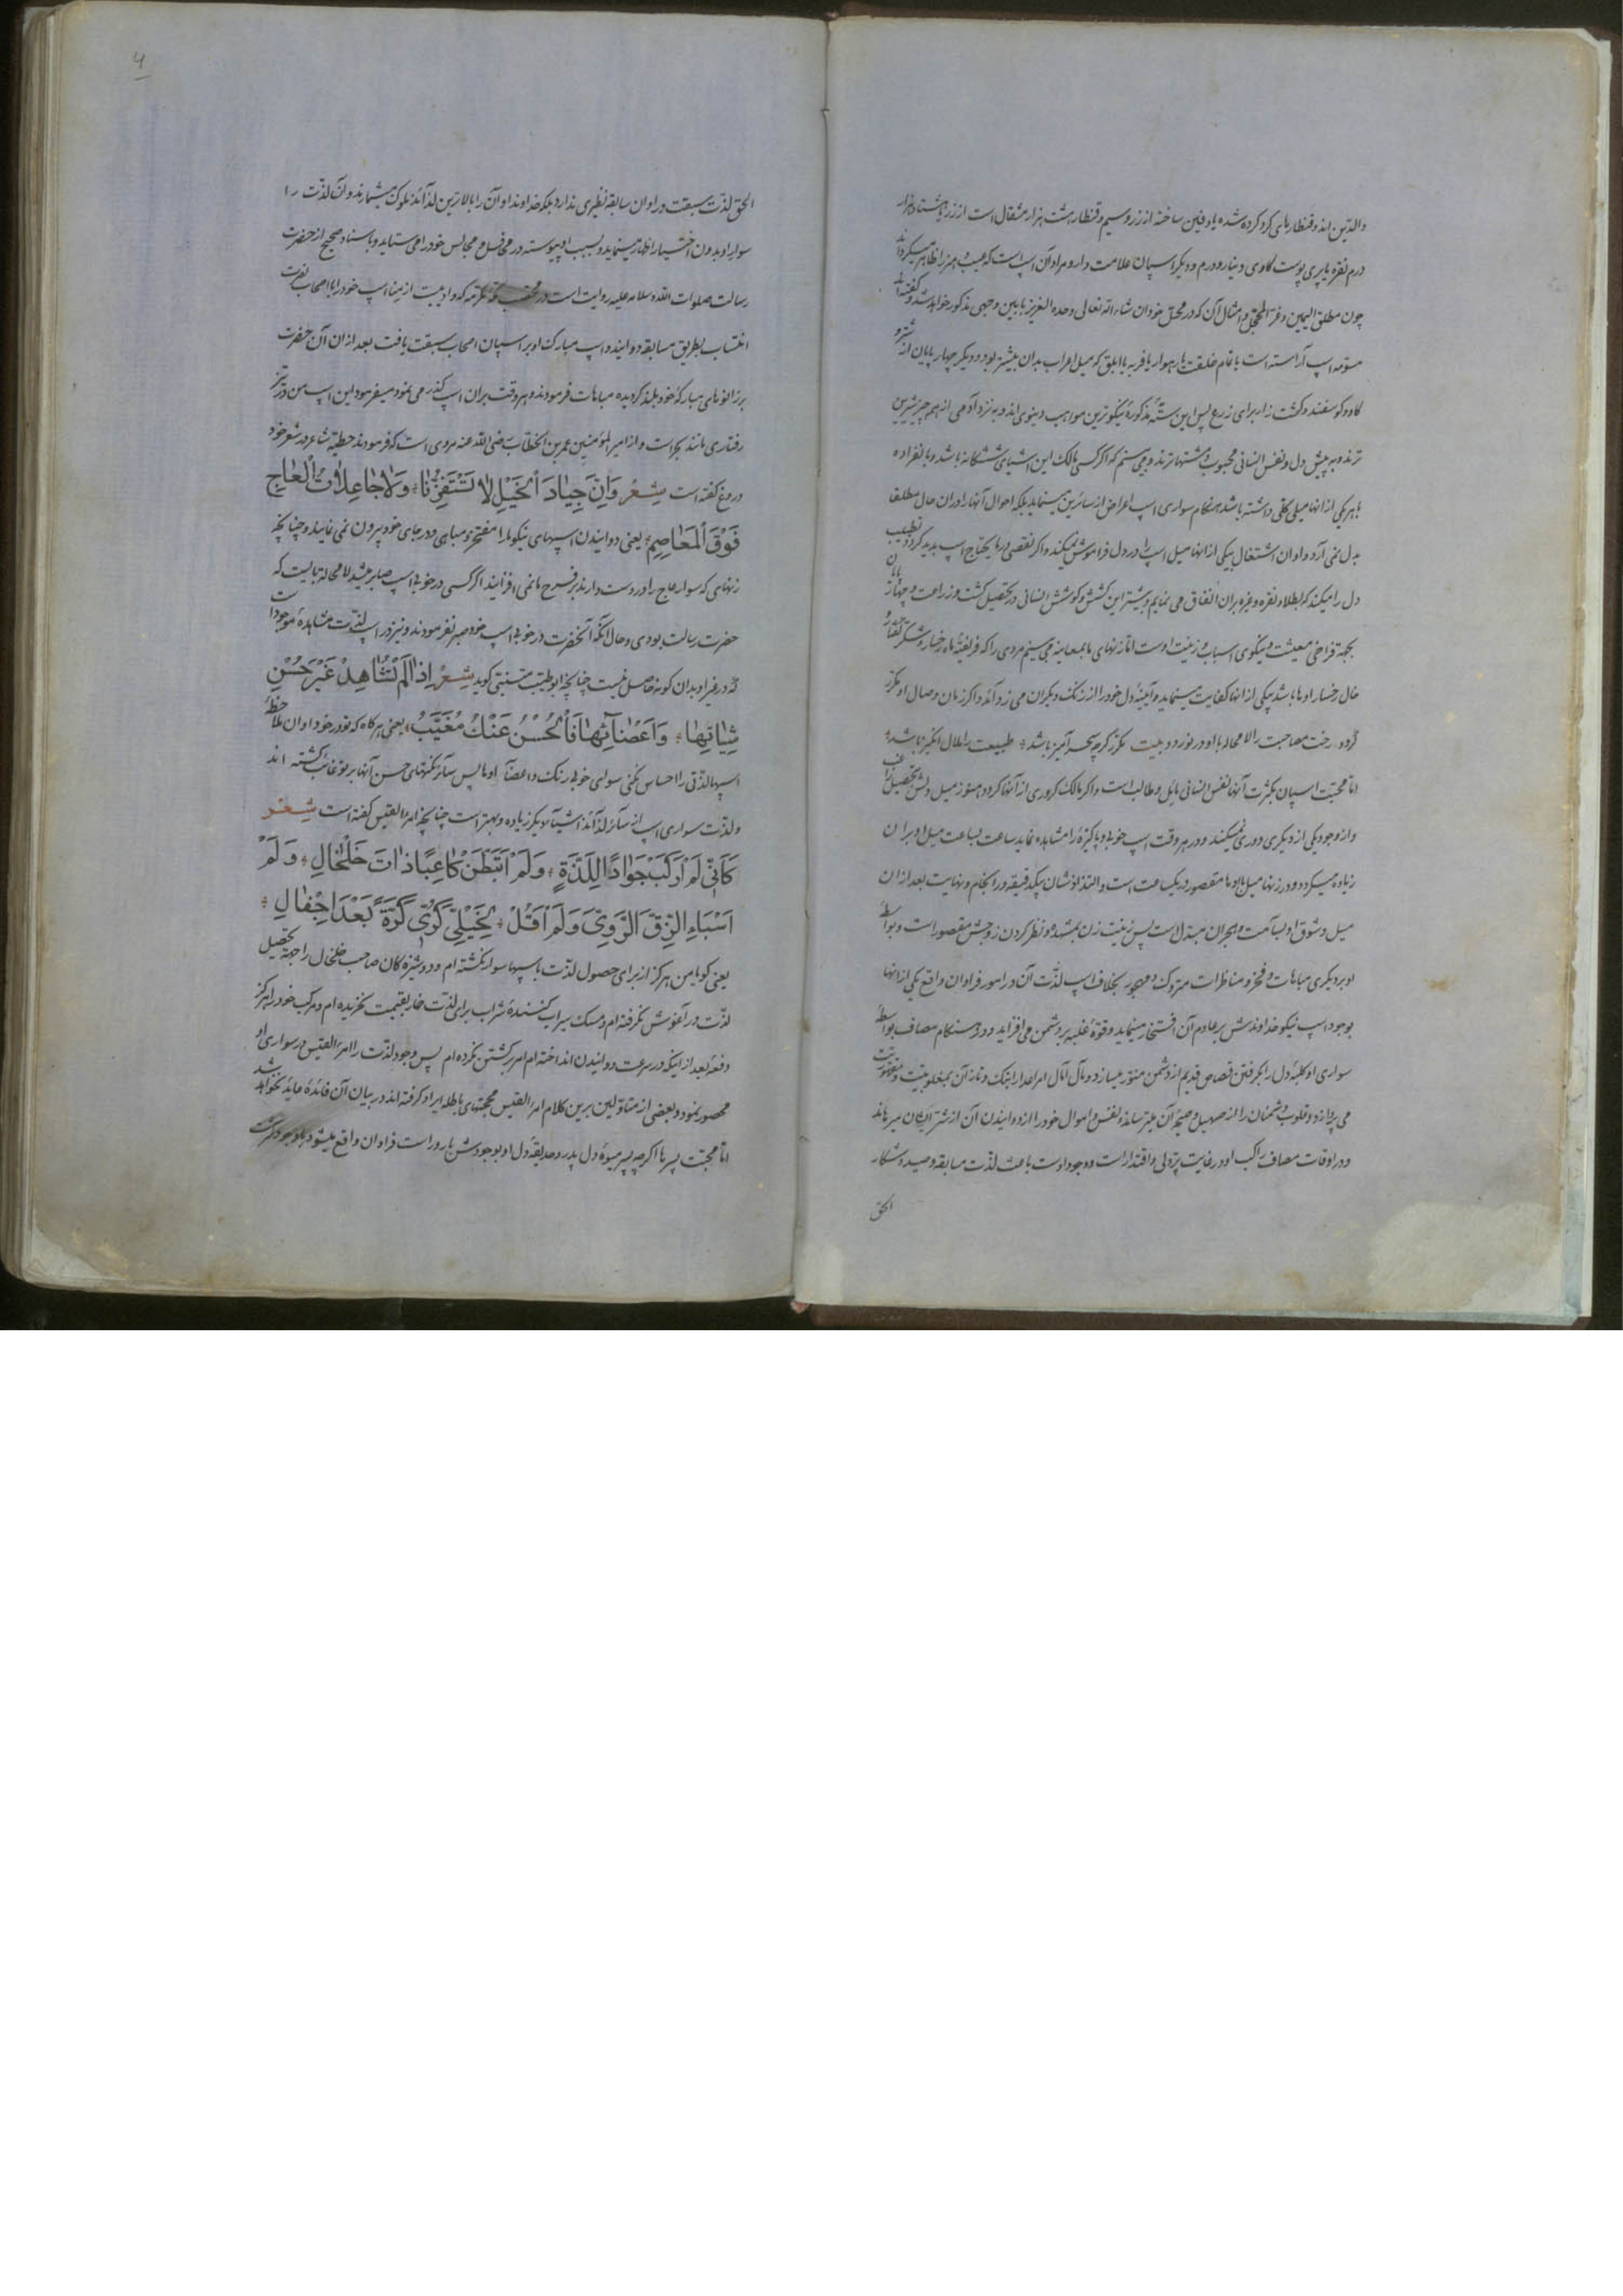 والدین اند و قنطارهای کرد کرده شده یا دفین ساخته از زر و سیم و قنطار هشت هزار مثقال است از زر یا هشتاد هزار
درم نقره یا پری پوست کاوی دینار و درم و دیکر اسپان علامت دار و مراد آن اسپ است که عیب و هنر را ظاهر میکرداند
چون مطلق الیمین و غر المحجل و امثال آن که در محل خود ان شاء الله تعالی وحده العزیز باین وجهی مذکور خواهد شد و کفته اند
مسومه اسپ آراسته است با تمام خلقت یا رهوار یا فربه یا ابلق که میل اعراب بدان بیشتر بود و دیکر چهار پایان از شتر و
کاو و کوسفند و کشت زار برای زرع پس این ستهٔ مذکورهٔ نیکوترین مواهب دنیوی اند و به نزد آدمی از همه چیز شیرین
ترند و به پیش دل و نفس انسانی محبوب و مشتهاترند و می بینم که اکر کسی مالک این اشیای ششکانه باشد و بانفراده
با هر یکی از انها میلی کلی داشته باشد هنکام سواری اسپ اعراض از سائرین مینماید بلکه احوال آنها را در ان حال مطلقا
بدل نمی آرد و اوان اشتغال بیکی از انها میل اسپ را در دل فراموش نمیکند و اکر نقصی در ما یحتاج اسپ پدید کردد تطییب
دل را میکند که بطلا و نقره و غیره بران انفاق می نمایم و بیشتر این کشش و کوشش انسانی در تحصیل کشت و زراعت و چهارپایان
بجهة فراخی معیشت و نیکوی اسباب و زینت اوست اما زنهای ما بمعاینه می بینیم مردی را که فریفتهٔ ماه رخسار و شکر کفتار و
خال رخسار او ها باشد بیکی از انها کفایت مینماید و آیینهٔ دل خود را از زنک دیکران می زداند و اکر زمان وصال او مکرر
کردد رخت مصاحبت را لا محاله با او در نوردد بیت مکرر کرچه سحر آمیز باشد طبیعت را ملال انکیز باشد
اما محبت اسپان بکثرت آنها نفس انسانی مائل و طالب است و اکر مالک کروری از آنها کردد هنوز میل دلش تحصیل را
و از وجود یکی از دیکری دوری نمیکند و در هر وقت اسپ خوب و پاکیزه را مشاهده نماید ساعت بساعت میل او بران
زیاده میکردد و در زنها میل باوها مقصور در یکساعت است و التذاذ نشان بیکدقیقه در انجام و نهایت بعد از ان
میل و شوق او بسآمت و هجران مبدل است پس زینت زن بمشهد و نظر کردن زوجش مقصور است و بواسطهٔ
او بر دیکری مباهات و فخر و مناظرات متروک و مهجور بخلاف اسپ لذت آن در امور فراوان واقع یکی از انها
بوجود اسپ نیکو خداوندش بر عادم آن افتخار مینماید و قوهٔ غلبه بر دشمن می افزاید و در هنکام مصاف بواسطهٔ
سواری او کلبهٔ دل را بکرفتن قصاص قدیم از دشمن منور میسازد و مآل آمال امر اعدا را بتک و تاز آن بمغلوبیت و مقهوریت
می پردازد و قلوب دشمنان را از صهیل و صیحهٔ آن میترساند و نفس و اموال خود را از دوانیدن آن از شر ایشان میرهاند
و در اوقات مصاف راکب او در غایت پردلی و اقتدار است و وجود اوست باعث لذت مسابقه و صید و شکار
الحق
۴
الحق لذت سبقت در اوان سابقه نظیری ندارد بلکه خداوند او آن را بالاترین لذائذ ملوک میشمارند و آن لذت را
سوار او بدون اختیار اظهار مینماید و بسبب او پیوسته در محافل و مجالس خود را می ستاید و باسناد صحیح از حضرت
رسالت صلوات الله و سلامه علیه روایت است در مکه مکرمه که وادیست از منا اسپ خود را با اصحاب نصرت
انتساب بطریق مسابقه دوانیدند اسپ مبارک او بر اسپان اصحاب سبقت یافت بعد از ان آن حضرت
بر زانوهای مبارکهٔ خود بلند کردیده مباهات فرمودند و هر وقت بران اسپ کذر می نمود میفرمود این اسپ من در تیز
رفتاری مانند بحر است و از امیر المؤمنین عمر بن الخطاب رضی الله عنه مروی است که فرمودند حطیئه شاعر در شعر خود
دروغ کفته است شِعْر وَاِنَّ جِیَادَ الْخَیْلِ لَا تَسْتَفِزُّنَا وَلَا جَاعِلَاتُ الْعَاجِ
فَوْقَ الْمَعَاصِمِ یعنی دوانیدن اسپهای نیکو ما را مفتخر و مباهی و در جای خود بیرون نمی نمایند و چنانچه
زنهای که سوار عاج را در دست دارند بر فرح ما نمی افزایند اکر کسی در خوبی اسپ صابر میشد لا محاله بایست که
حضرت رسالت بودی و حال آنکه آنحضرت در خوبی اسپ خود صبر نفرمودند و نیز در اسپ لذت مشاهدهٔ موجود است
که در غیر او بدان کونه حاصل نیست چنانچه ابو طیب متنبی کوید شِعْر اِذَا لَمْ تُشَاهِدْ غَیْرَ حُسْنِ
شِیَاتِهَا وَاَعْضَآئِهَا فَالْحُسْنُ عَنْكَ مُغَیَّبُ یعنی هر کاه که تو در خود اوان ملاحظهٔ
اسپها لذتی را احساس نکنی سوای خوبی رنک و اعضآ اوها پس سائر نکتهای حسن آنها بر تو غائب کشته اند
و لذت سواری اسپ از سائر لذائذ اشیآء دیکر زیاده و بهتر است چنانچه امرء القیس کفته است شِعْر
كَاَنِّی لَمْ اَرْكَبْ جَوَادًا لِلَذَّةٍ وَلَمْ اَتَبَطَّنْ كَاعِبًا ذَاتَ خَلْخَالِ وَلَمْ
اَسْبَاءِ الزِّقَّ الرَّوِیَّ وَلَمْ اَقُلْ لِخَیْلِیَ كُرِّی كَرَّةً بَعْدَ اِجْفَالِ
یعنی کویا من هرکز از برای حصول لذت باسپها سوار نکشته ام و دوشیزه کان صاحب خلخال را جهة تحصیل
لذت در آغوش نکرفته ام و مسک سیراب کننده شراب برای لذت خمار بقیمت نخریده ام و مرکب خود را هرکز
دفعهٔ بعد از اینکه در سرعت دوانیدن انداخته ام امر برکشتن نکرده ام پس وجود لذت را امرء القیس در سواری او
محصور نمود و بعضی از متاولین برین کلام امرء القیس حجتهای باطله ایراد کرفته اند در بیان آن فائدهٔ عاید نخواهد شد
اما محبت پسرها اکرچه پسر میوهٔ دل پدر و حدیقهٔ دل او بوجودش بارور است فراوان واقع میشود با وجود کثرت